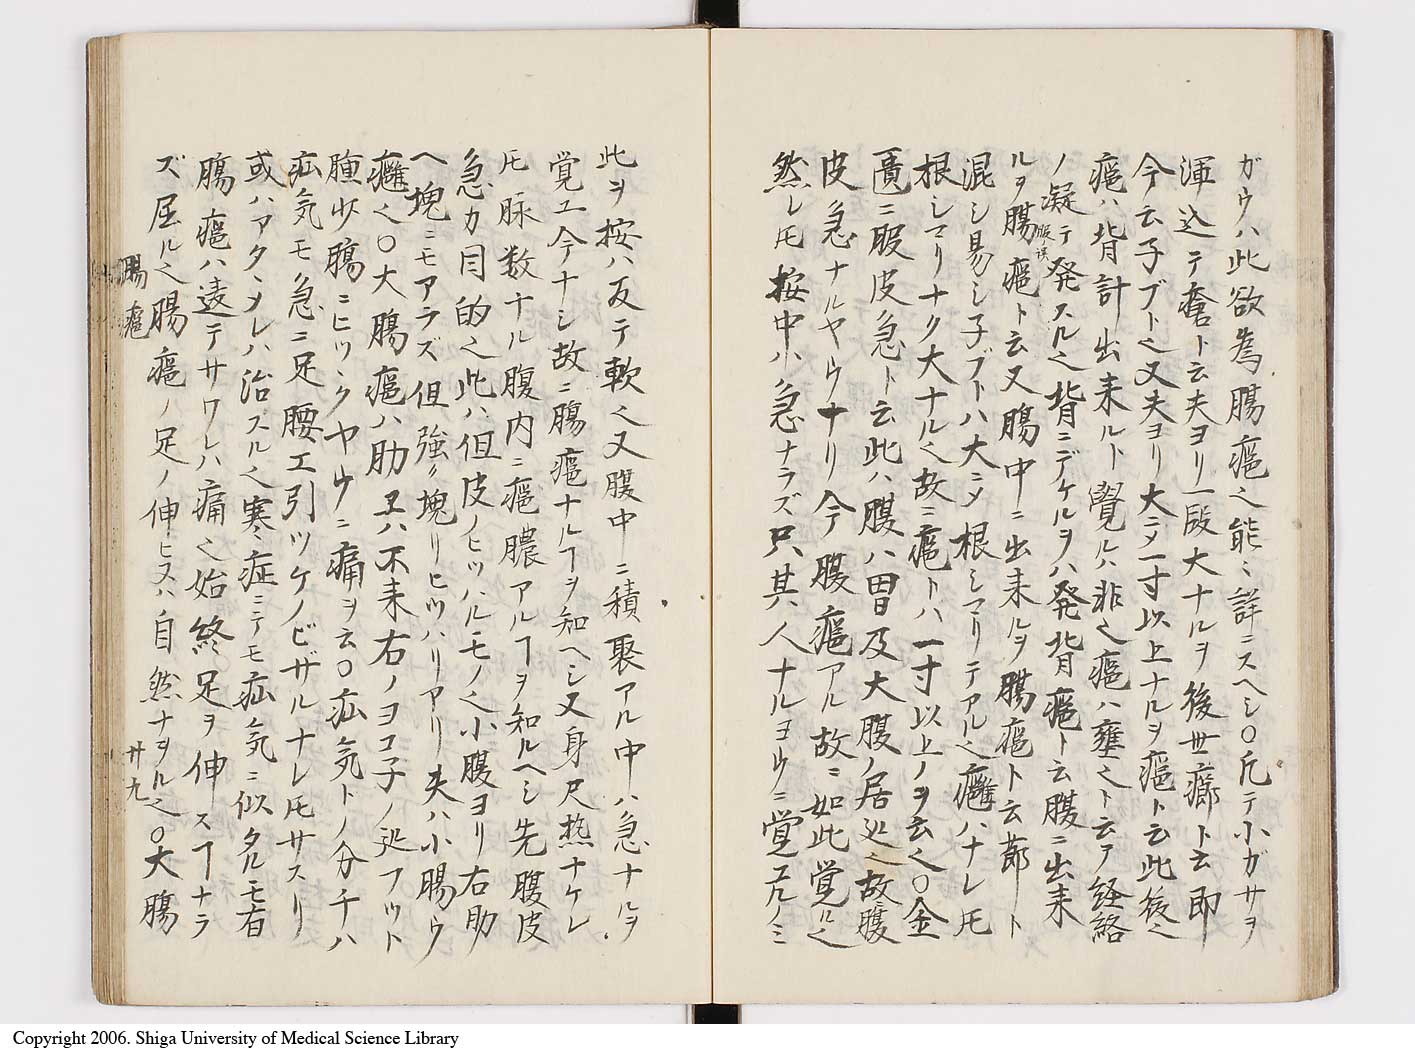 ガウハ此欲為腸癰也能〻詳ニスヘシ〇凡テ小ガサヲ
渾込テ瘡ト云夫ヨリ一段大ナルヲ後世癤ト云即
今云子ブト也又夫ヨリ大ニメ一寸以上ナルヲ癰ト云此後也
癰ハ背計出来ルト覺ルハ非也癰ハ壅也ト云テ経絡
ノ凝テ発スル也背ニデケルヲハ発背癰ト云腹ニ出来
ルヲ腸癰ト云又腸中ニ出来ルヲ腸癰ト云節ト
腹誤
混シ易シ子ブトハ大ニメ根シマリテアル也癰ハナレ𪜈
根シマリナク大ナル也故ニ癰トハ一寸以上ノヲ云也〇金
匱ニ腹皮急ト云此ハ腹ハ胃及大腹ノ居処也故腹
皮急ナルヤウナリ今腹癰アル故ニ如此覚ル也
然レ𪜈按中ハ急ナラズ只其人ナルヨウニ覚エルノミ
此ヲ按ハ反テ軟也又腹中ニ積聚アル中ハ急ナルヲ
覚エ今ナシ故ニ腸癰ナルヿヲ知ヘシ又身尺熱ナケレ
𪜈脉数ナル腹内ニ癰膿アルヿヲ知ルヘシ先腹皮
急カ目的也此ハ但皮ノヒツハルモノ也小腹ヨリ右肋
ヘ塊ニモアラズ但強ク塊リヒツハリアリ夫ハ小腸ウ
癰也〇大腸癰ハ肋エハ不来右ノヨコ子ノ処フツト
腫少腸ニヒツクヤウニ痛ヲ云〇疝気トノ分チハ
疝気モ急ニ足腰エ引ツケノビザルナレ𪜈サスリ
或ハアタヽタレハ治スル也寒症ニテモ疝気ニ似タルモ有
腸癰ハ遠テサワレハ痛也始終足ヲ伸スヿナラ
ズ屈ル也腸癰ノ足ノ伸ヒヌハ自然ナヲル也〇大腸
腸癰
廿九
Copyright 2006. Shiga University of Medical Science Library